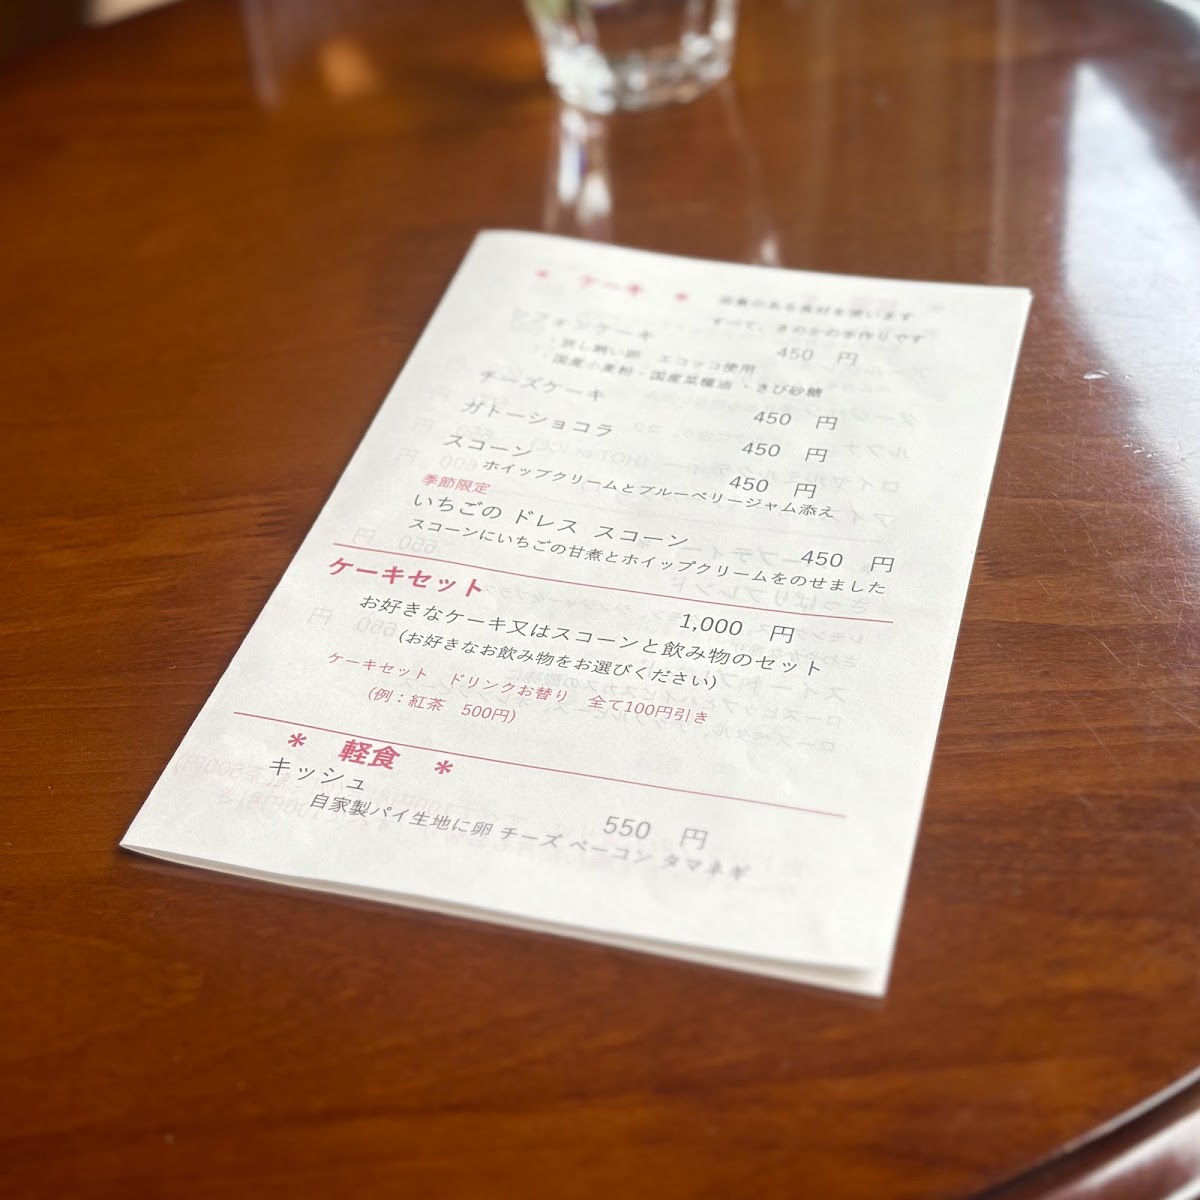 * ケーキ *
栄養のある食材を使います
すべて、きのかの手作りです
シフォンケーキ 450 円
・放し飼い卵 エコッコ使用
・国産小麦粉・国産菜種油・きび砂糖
チーズケーキ 450 円
ガトーショコラ 450 円
スコーン 450 円
ホイップクリームとブルーベリージャム添え
季節限定
いちごの ドレス スコーン 450 円
スコーンにいちごの甘煮とホイップクリームをのせました
ケーキセット 1,000 円
お好きなケーキ又はスコーンと飲み物のセット
(お好きなお飲み物をお選びください)
ケーキセット ドリンクお替り 全て100円引き
(例：紅茶 500円)
* 軽食 *
キッシュ 550 円
自家製パイ生地に卵 チーズ ベーコン タマネギ